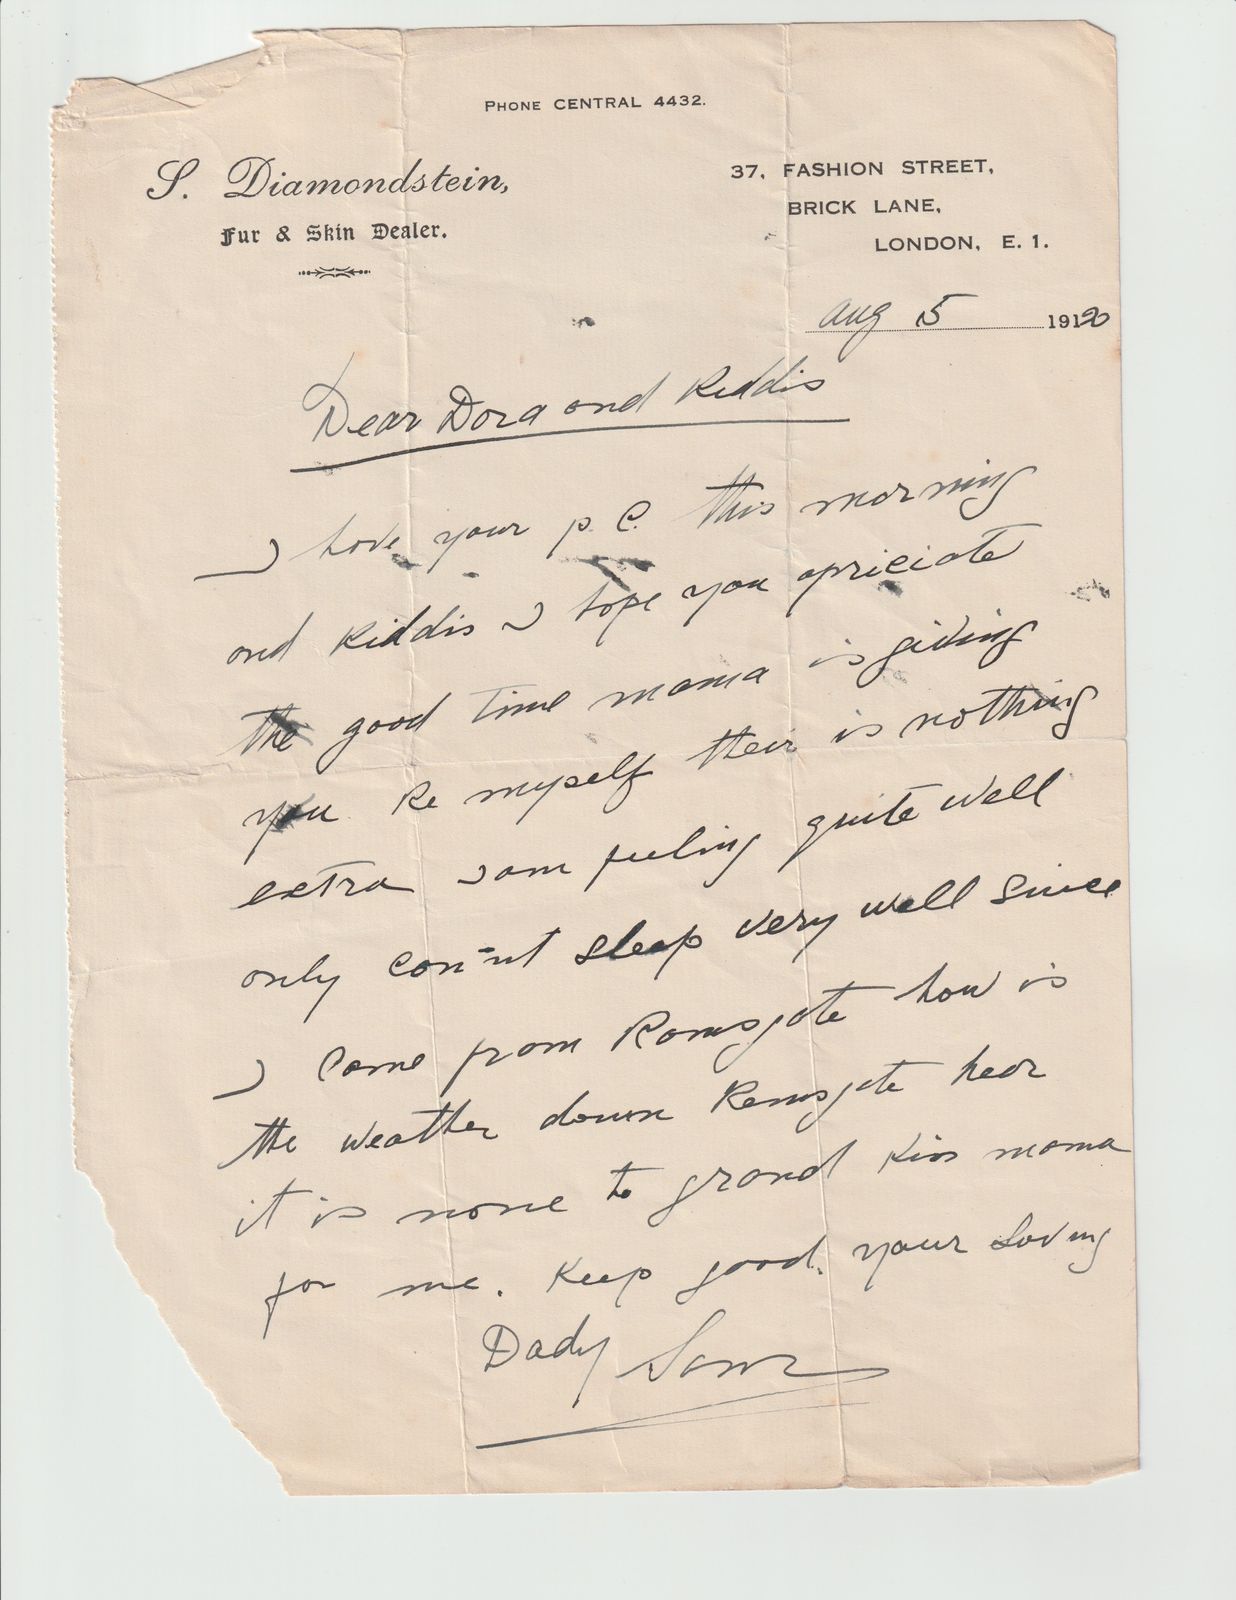 PHONE CENTRAL 4432.
S. Diamondstein,
Fur & Skin Dealer.
37, FASHION STREET,
BRICK LANE,
LONDON, E. 1.
Aug 5 1920
Dear Dora and Kiddis
I have your p. C. this morning
and Kiddis I hope you apriciate
the good time mama is giving
you Re myself their is nothing
extra I am feeling quite well
only can-nt sleep very well since
I came from Ramsgate how is
the weather down Ramsgate hear
it is none to grand Kiss mama
for me. Keep good. your Loving
Dady Sam